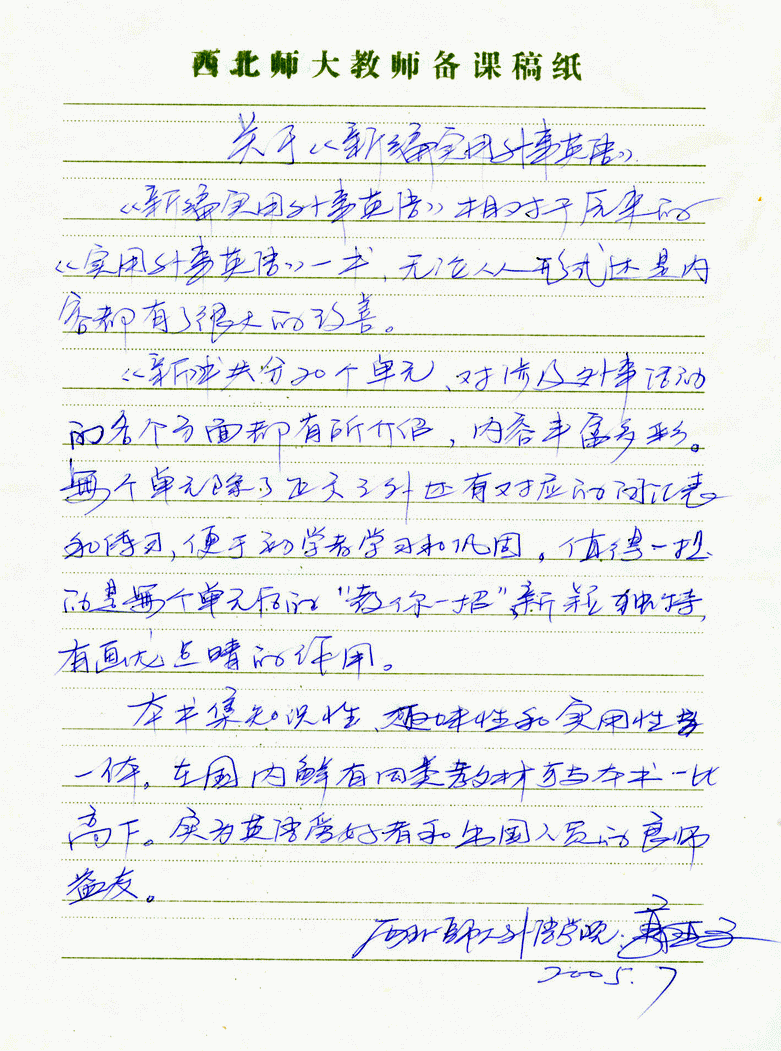 西北师大教师备课稿纸
关于《新编实用外事英语》
《新编实用外事英语》相对于原来的
《实用外事英语》一书，无论从形式还是内
容都有了很大的改善。
《新》书共分20个单元、对涉及外事活动
的各个方面都有所介绍，内容丰富多彩。
每个单元除了正文之外还有对应的词汇表
和练习，便于初学者学习和巩固。值得一提
的是每个单元后的“教你一招”，新颖独特，
有画龙点睛的作用。
本书集知识性、趣味性和实用性于
一体，在国内鲜有同类教材可与本书一比
高下。实为英语爱好者和出国人员的良师
益友。
西北师大外语学院
2005.7